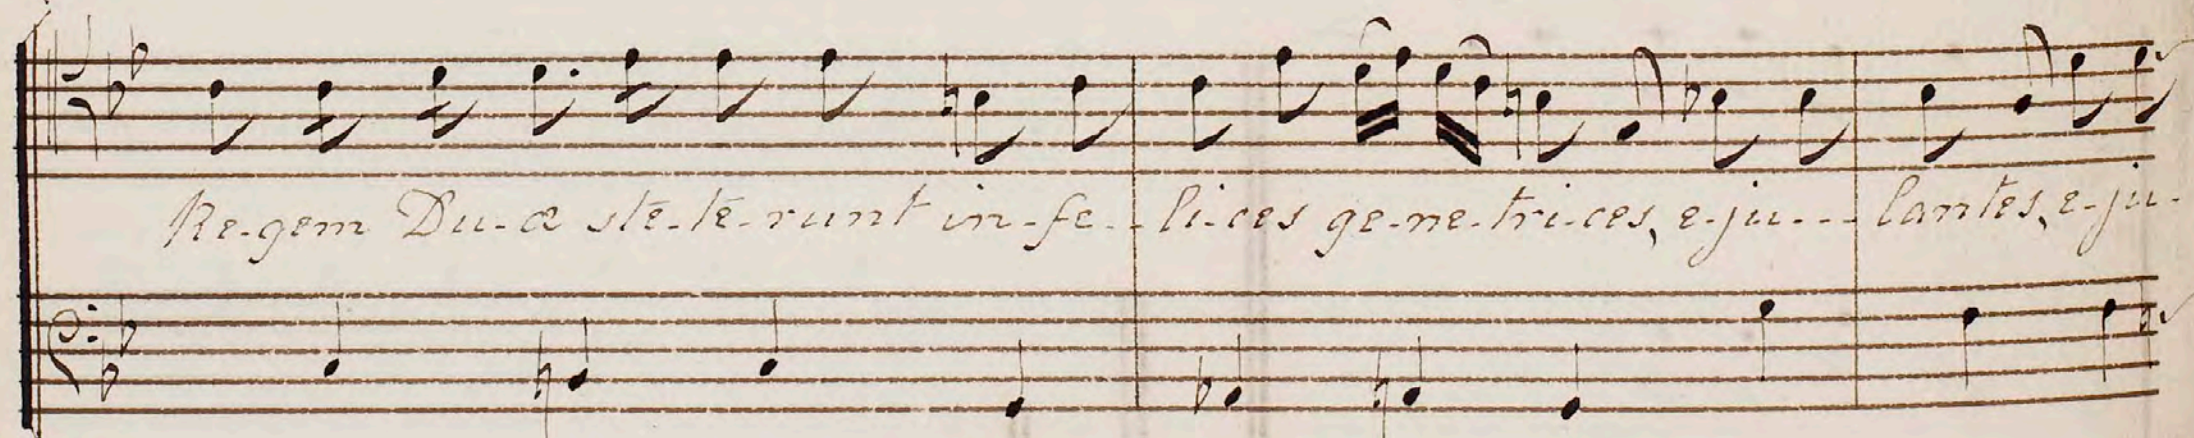 Re-gem Du-æ sté-té-runt in-fe--li-ces ge-ne-tri-ces, e-ju---lantes, e-ju-